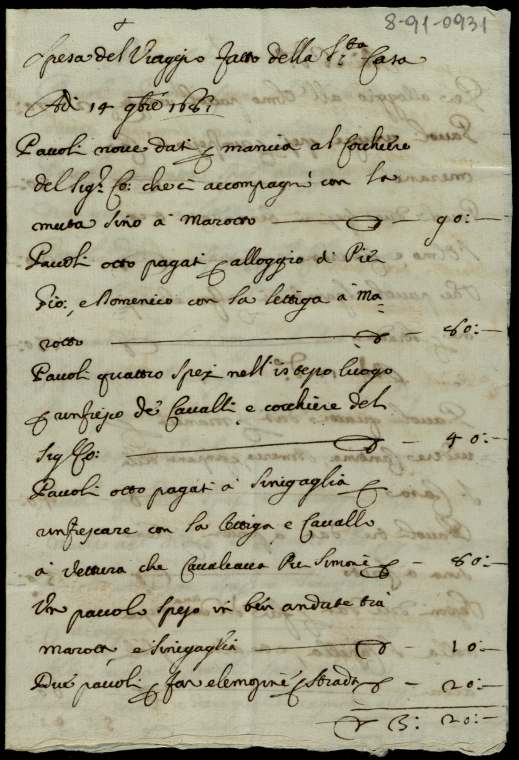 8-91-0931
Spesa del Viaggio fatto della S.ta Casa
Adi 14 9bre 1687
Pauoli noue dati p mancia al Cochiere
del Sigr. Co: che ci accompagnò con la
muta sino a Marotto — 90:—
Pauoli otto pagati p alloggio di Pier
Gio: e Domenico con la lettiga a Ma=
rotto — 80:—
Pauoli quattro spesi nell'istesso luogo
p rinfresco de Caualli e cocchiere del
Sigr Co: — 40:—
Pauoli otto pagati à Sinigaglia p
rinfrescare con la lettiga e Caualli
a Vettura che Caualcaua Pier Simone — 80:—
Un pauolo speso in ben andate trà
Marotta e Sinigaglia — 10:—
Due pauoli p far elemosine p strada — 20:—
3: 20:—